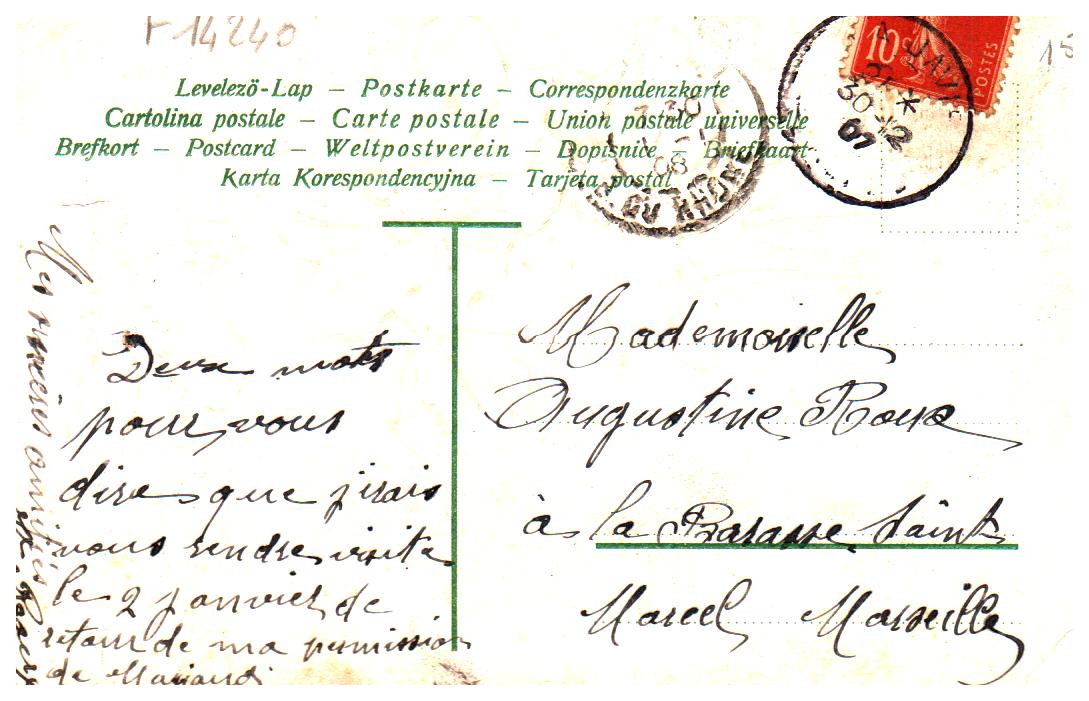 F 14240
15
10 POSTES
30 -12
07
Levelező-Lap – Postkarte – Correspondenzkarte
Cartolina postale – Carte postale – Union postale universelle
Brefkort – Postcard – Weltpostverein – Dopisnice – Briefkaart
Karta Korespondencyjna – Tarjeta postal
Deux mots
pour vous
dire que j'irais
vous rendre visite
le 2 janvier de
retour de ma permission
de
Mes amitiés
Mademoiselle
Augustine Roux
à la Barasse Saint
Marcel Marseille